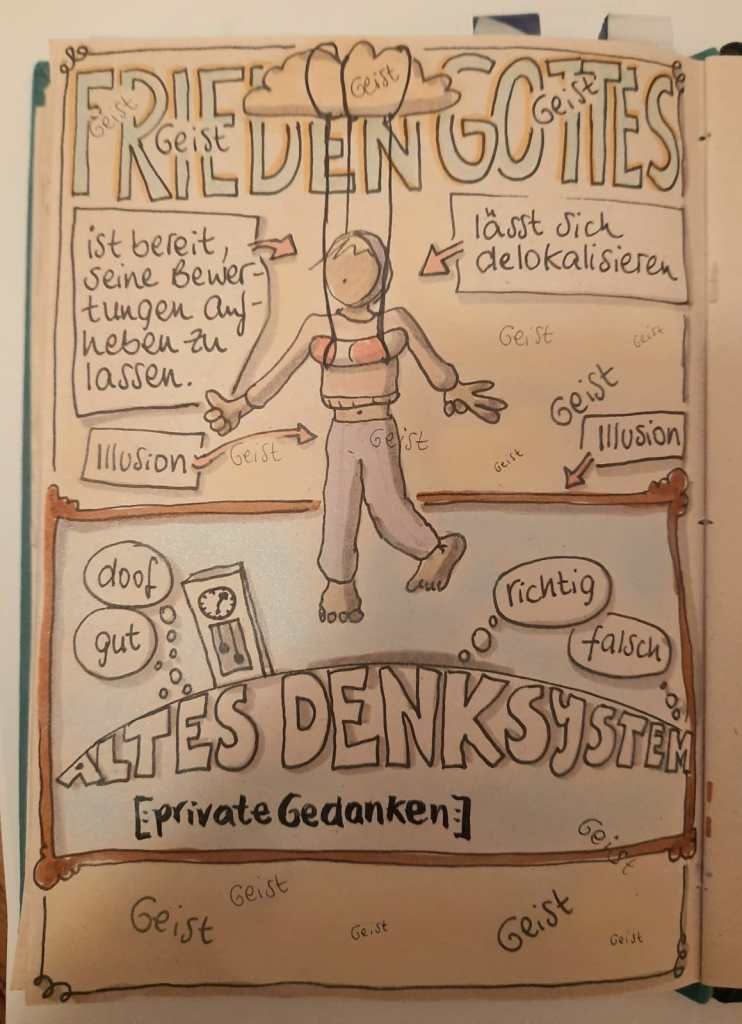 FRIEDEN GOTTES
Geist
Geist
Geist
Geist
ist bereit,
seine Bewer-
tungen auf-
heben zu
lassen.
lässt sich
delokalisieren
Geist
Geist
Geist
Illusion
Geist
Geist
Geist
Illusion
doof
gut
richtig
falsch
ALTES DENKSYSTEM
[private Gedanken]
Geist
Geist
Geist
Geist
Geist
Geist